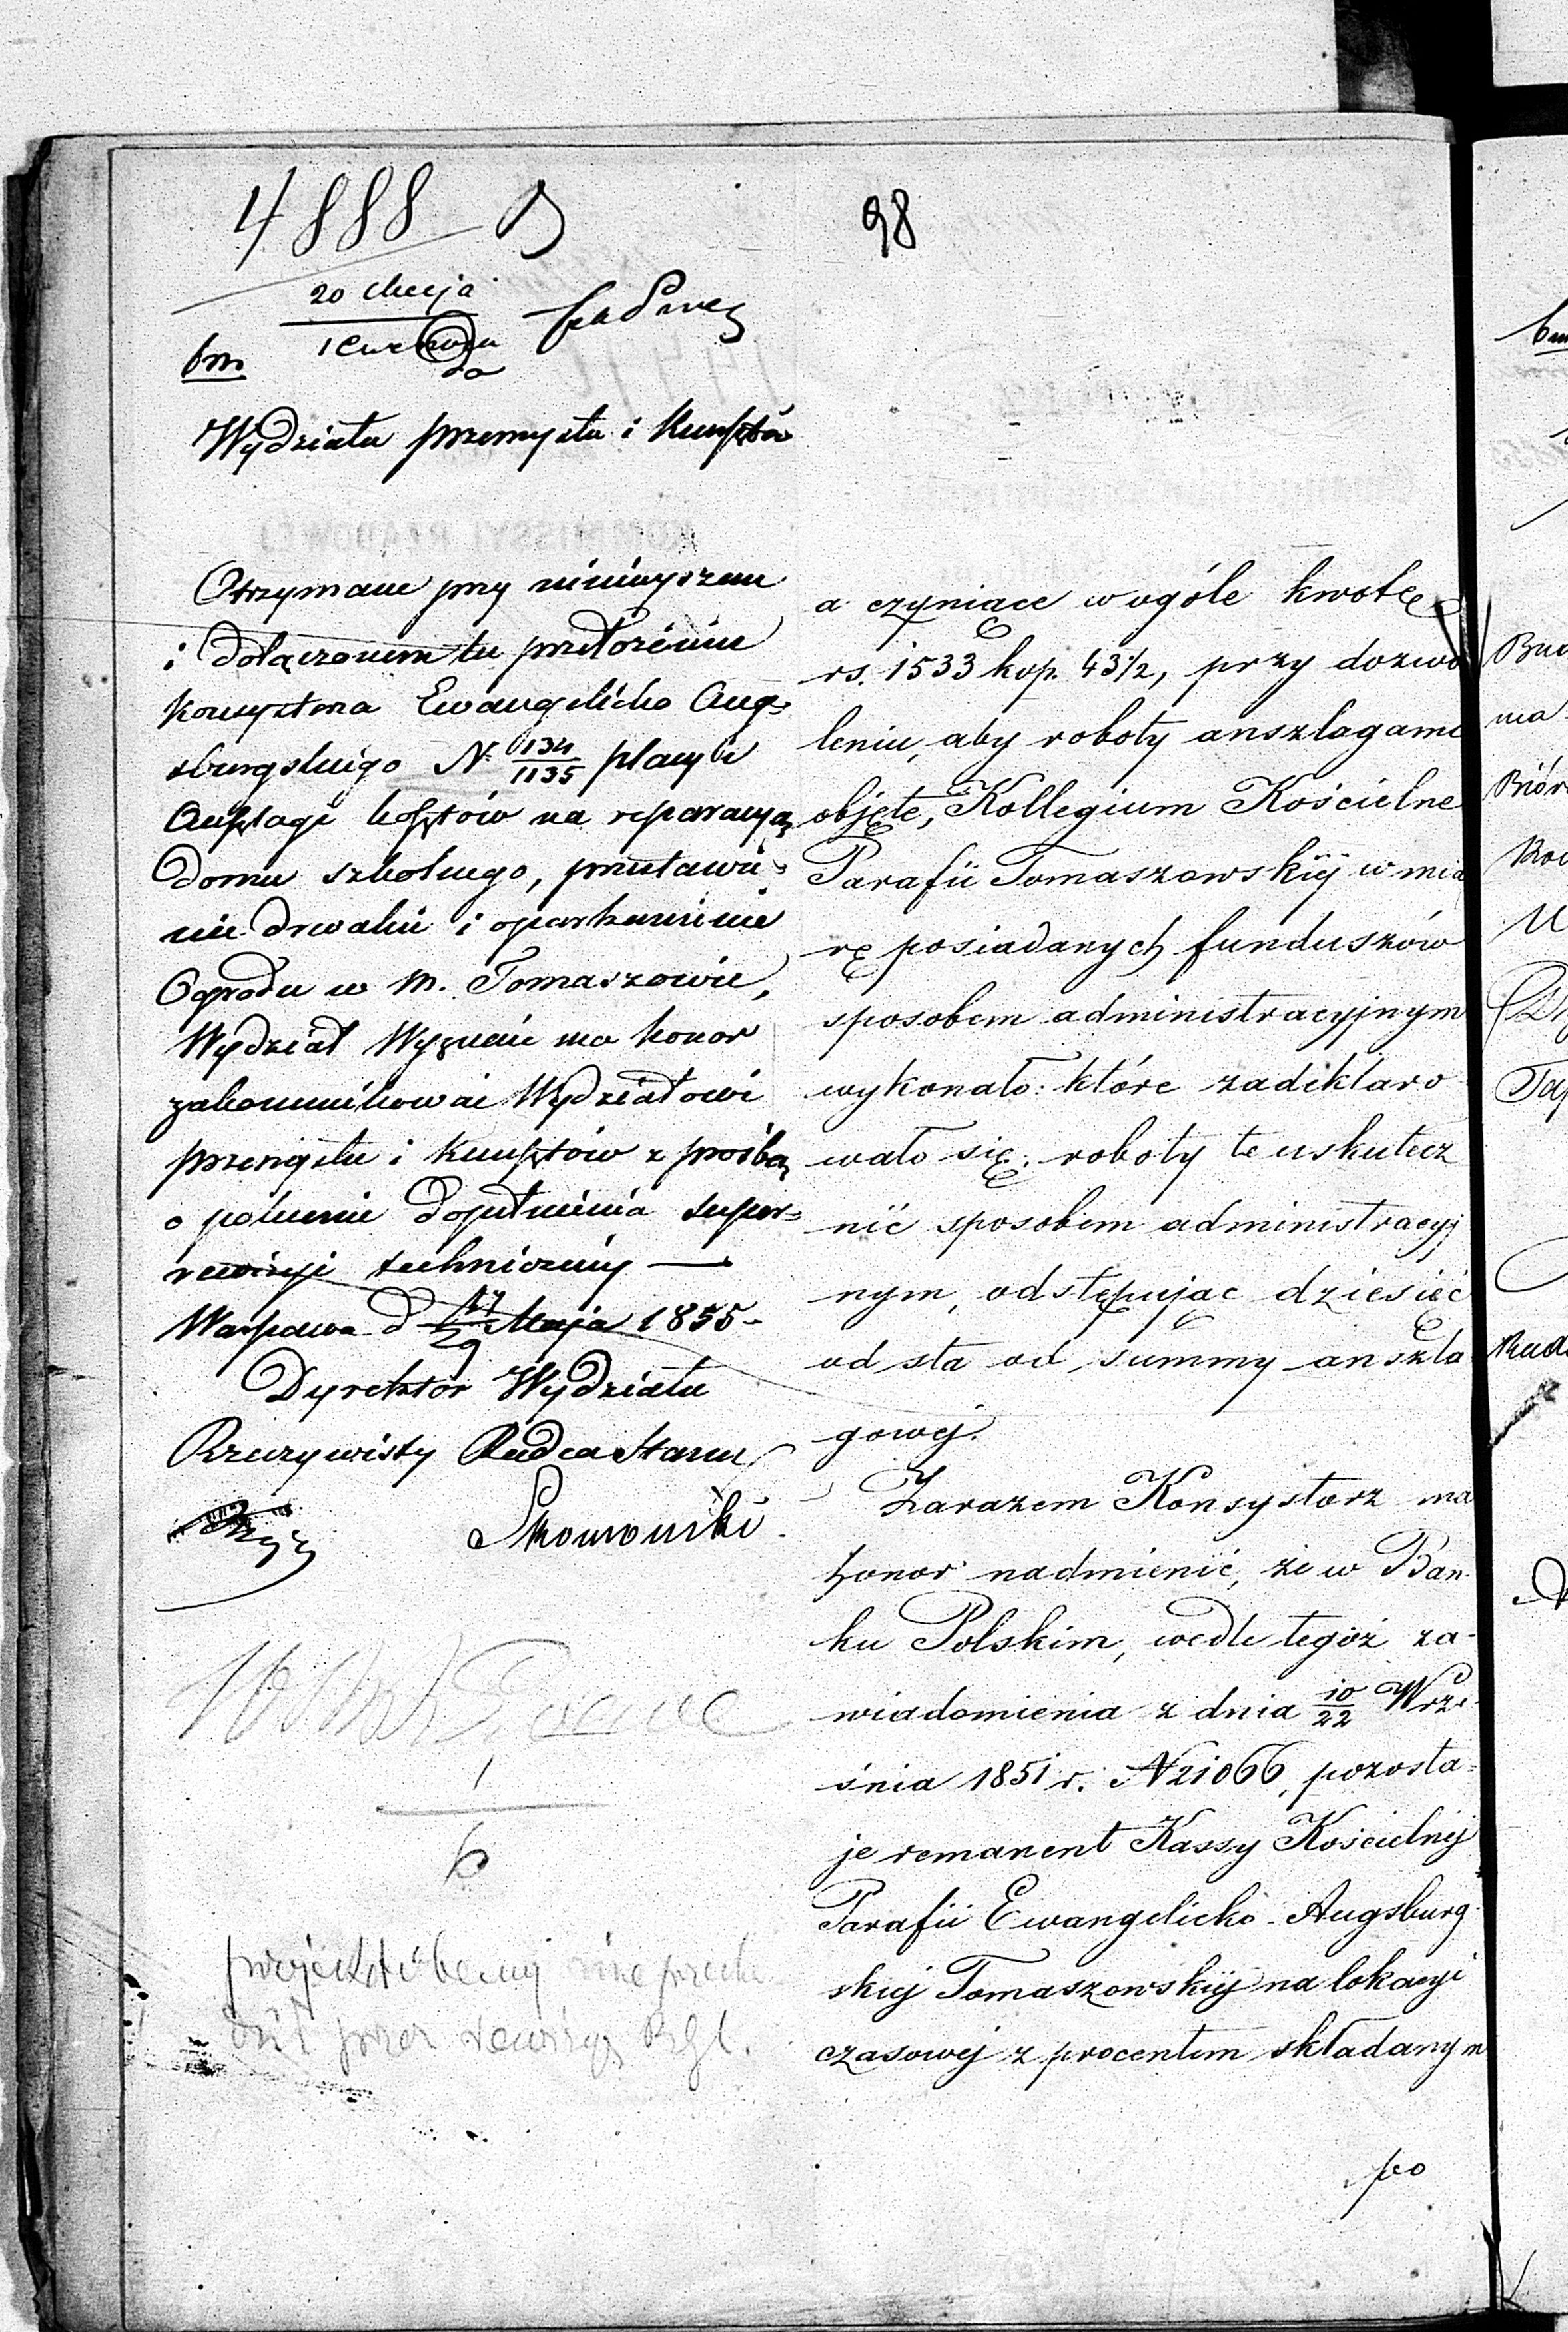 4888
98
20 Maja
1 Czerwca
bm
do
Wydziału Przemysłu i Kunsztów
Otrzymane przy niniejszem
i dołączonem tu przełożeniu
Konsystorza Ewangelicko Aug=
sburgskiego N. 134/1135 plany i
Anszlagi kosztów na reparacyą
Domu szkolnego, przestawie=
nie drwalni i oparkanienie
Ogrodu w M. Tomaszowie,
Wydział Wyznań ma honor
zakommunikować Wydziałowi
przemysłu i Kunsztów z prośbą
o polecenie dopełnienia super=
rewizyi technicznéj —
Warszawa d 17/29 Maja 1855 -
Dyrektor Wydziału
Rzeczywisty Radca Stanu
a czyniące w ogóle kwotę
rs. 1533 kop. 43 1/2, przy dozwo
leniu, aby roboty anszlagami
objęte, Kollegium Kościelne
Parafii Tomaszowskiéj w mia
rę posiadanych funduszów
sposobem administracyjnym
wykonało: które zadeklaro
wało się, roboty te uskutecz
nić sposobem administracyj
nym, odstępując dziesięć
od sta od summy anszla
gowéj.
Zarazem Konsystorz ma
honor nadmienić, że w Ban-
ku Polskim, wedle tegoż za-
wiadomienia z dnia 10/22 Wrze-
śnia 1851 r. N 21066, pozosta=
je remanent Kassy Kościelnéj
Parafii Ewangelicko-Augsburg-
skiej Tomaszowskiéj na lokacyi
czasowéj z procentem składanym
po